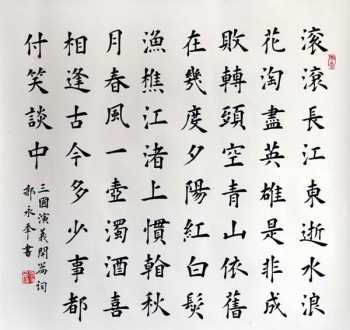 滾滾長江東逝水浪
花淘盡英雄是非成
敗轉頭空青山依舊
在幾度夕陽紅白髮
漁樵江渚上慣翰秋
月春風一壺濁酒喜
相逢古今多少事都
付笑談中
三國演義開篇詞
永書